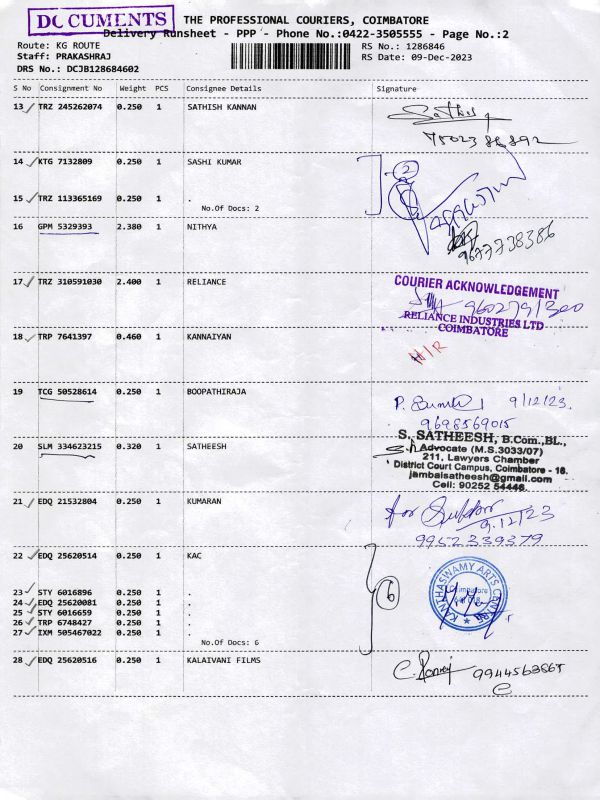 DOCUMENTS
THE PROFESSIONAL COURIERS, COIMBATORE
Delivery Runsheet - PPP - Phone No.:0422-3505555 - Page No.:2
Route: KG ROUTE
Staff: PRAKASHRAJ
DRS No.: DCJB128684602
RS No.: 1286846
RS Date: 09-Dec-2023
S No Consignment No Weight PCS Consignee Details Signature
13 TRZ 245262074 0.250 1 SATHISH KANNAN
14 KTG 7132809 0.250 1 SASHI KUMAR
2
15 TRZ 113365169 0.250 1 .
No.Of Docs: 2
16 GPM 5329393 2.380 1 NITHYA
9677738386
17 TRZ 310591030 2.400 1 RELIANCE
COURIER ACKNOWLEDGEMENT
RELIANCE INDUSTRIES LTD
COIMBATORE
18 TRP 7641397 0.460 1 KANNAIYAN
N/R
19 TCG 50528614 0.250 1 BOOPATHIRAJA
9/12/23.
9698569015
20 SLM 334623215 0.320 1 SATHEESH
S. SATHEESH, B.Com.,BL.,
Advocate (M.S.3033/07)
211, Lawyers Chamber
District Court Campus, Coimbatore - 18.
jambaisatheesh@gmail.com
Cell: 90252 54446.
21 EDQ 21532804 0.250 1 KUMARAN
for
9.12/23
9952339379
22 EDQ 25620514 0.250 1 KAC
6
KANTHASWAMY ARTS CENTRE
Coimbatore
23 STY 6016896 0.250 1 .
24 EDQ 25620081 0.250 1 .
25 STY 6016659 0.250 1 .
26 TRP 6748427 0.250 1 .
27 IXM 505467022 0.250 1 .
No.Of Docs: 6
28 EDQ 25620516 0.250 1 KALAIVANI FILMS